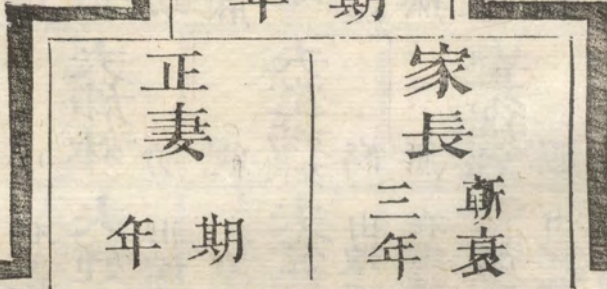 期年
家長
斬衰
三年
正妻
期年